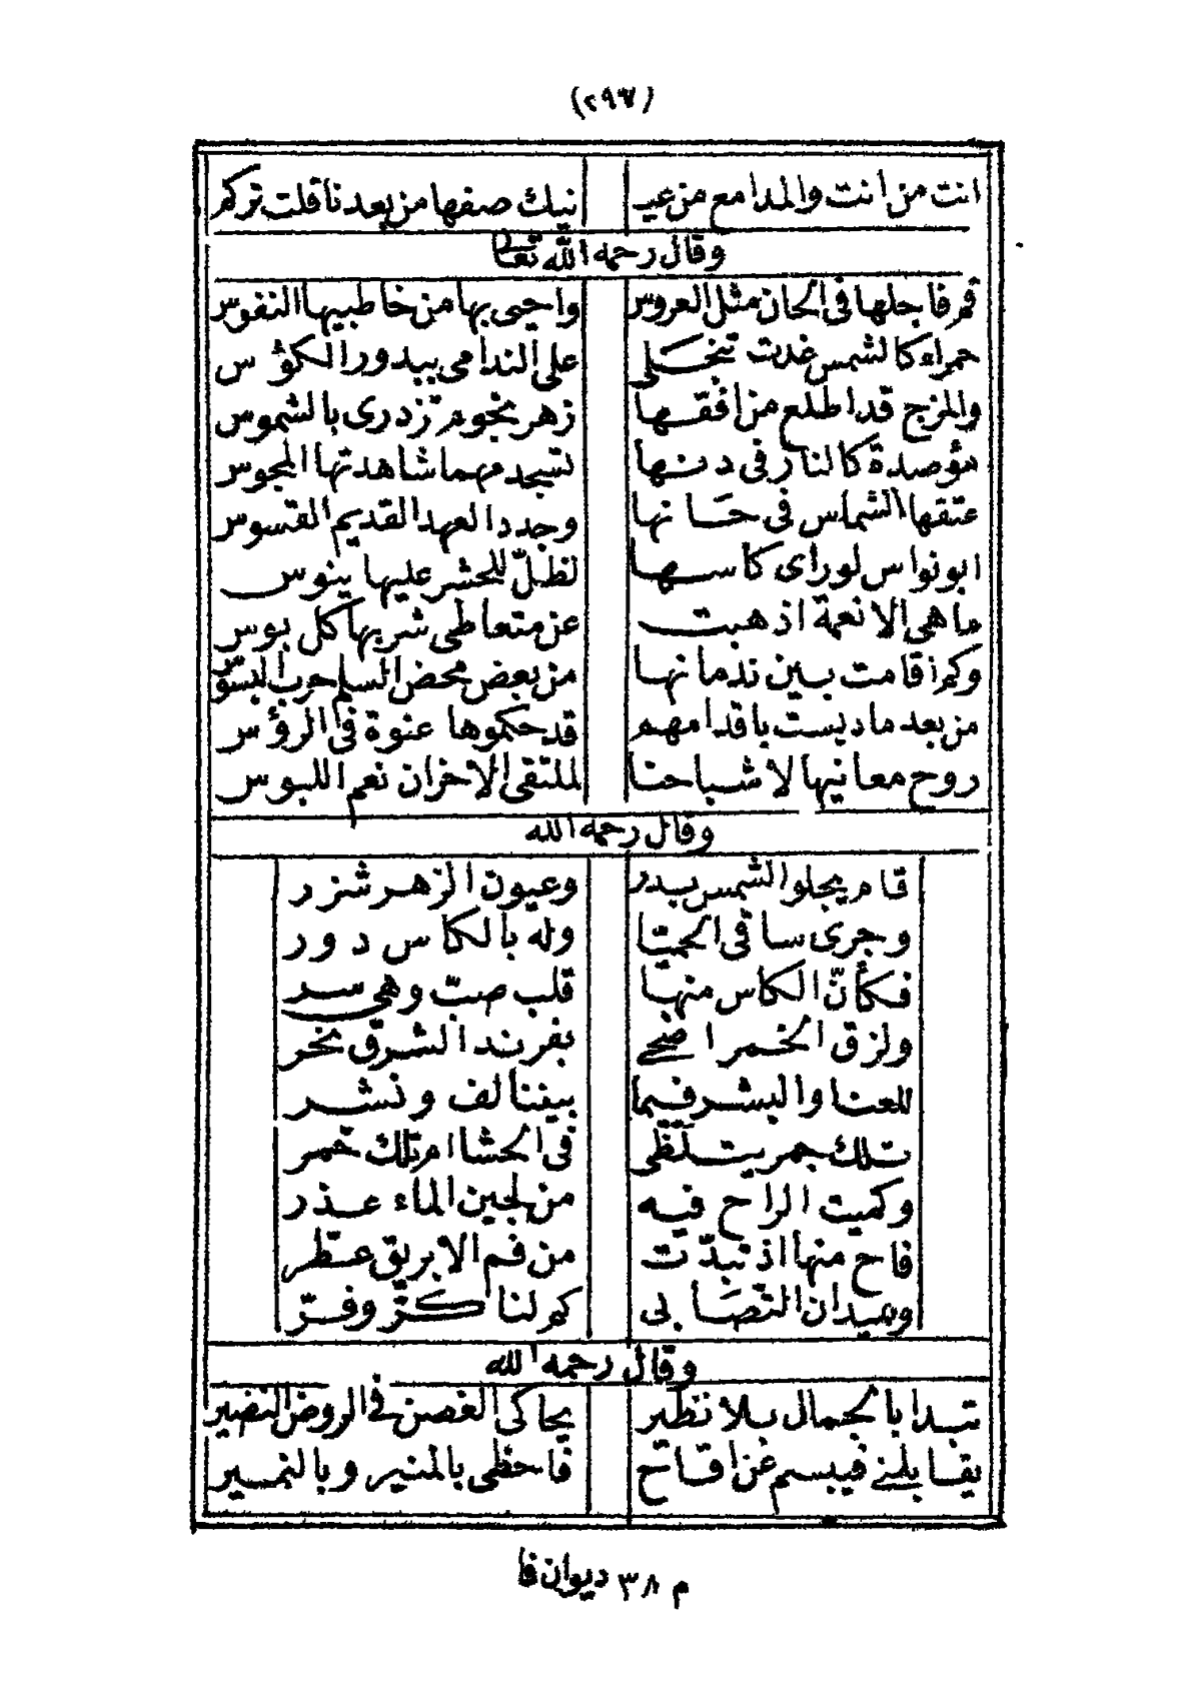 (٢٩٧)
انت من انت والمدا مع من عيـ نيك صفها من بعد نا قلت تركم
وقال رحمه الله تعالى
قم فاجلها فى الحان مثل العروس واحيى بها من خاطبيها النفوس
حمراء كالشمس غدت تنجلى على الندامى ببدور الكؤس
والمزج قد اطلع من افقها زهر نجوم تزدرى بالشموس
مؤصدة كالنار فى دنها تسجد مهما شاهدتها المجوس
عتقها الشماس فى حانها وجدد العهد القديم القسوس
ابو نواس لوراى كاسها لظلّ للحشر عليها ينوس
ما هى الا نعمة اذهبت عن متعاطى شربها كل بوس
وكم اقامت بين ندمانها من بعض محض السلم حرب البسوس
من بعد ماديست باقدامهم قد حكموها عنوة فى الرؤس
روح معانيها لاشباحنا لملتقى الاخران نعم اللبوس
وقال رحمه الله
قام يجلو الشمس بدر وعيون الزهر شزر
وجرى ساقى الحميّا وله بالكاس دور
فكأنّ الكاس منها قلب صبّ وهى سر
ولزق الخمر اضحى بفرند الشرق نحر
للعنا والبشر فيما بيننا لف ونشر
تلك جمر يتلظّى فى الحشا ام تلك خمر
وكميت الراح فيه من لجين الماء عذر
فاح منها اذ تبدّت من فم الابريق عطر
وميدان التصابى كم لنا كرّ وفرّ
وقال رحمه الله
تبدا بالجمال بلا نظير يحاكى الغصن فى الروض النضير
يقابلنى فيبسم عن اقاح فاحظى بالمنير وبالنمير
م ٣٨ ديوان فا